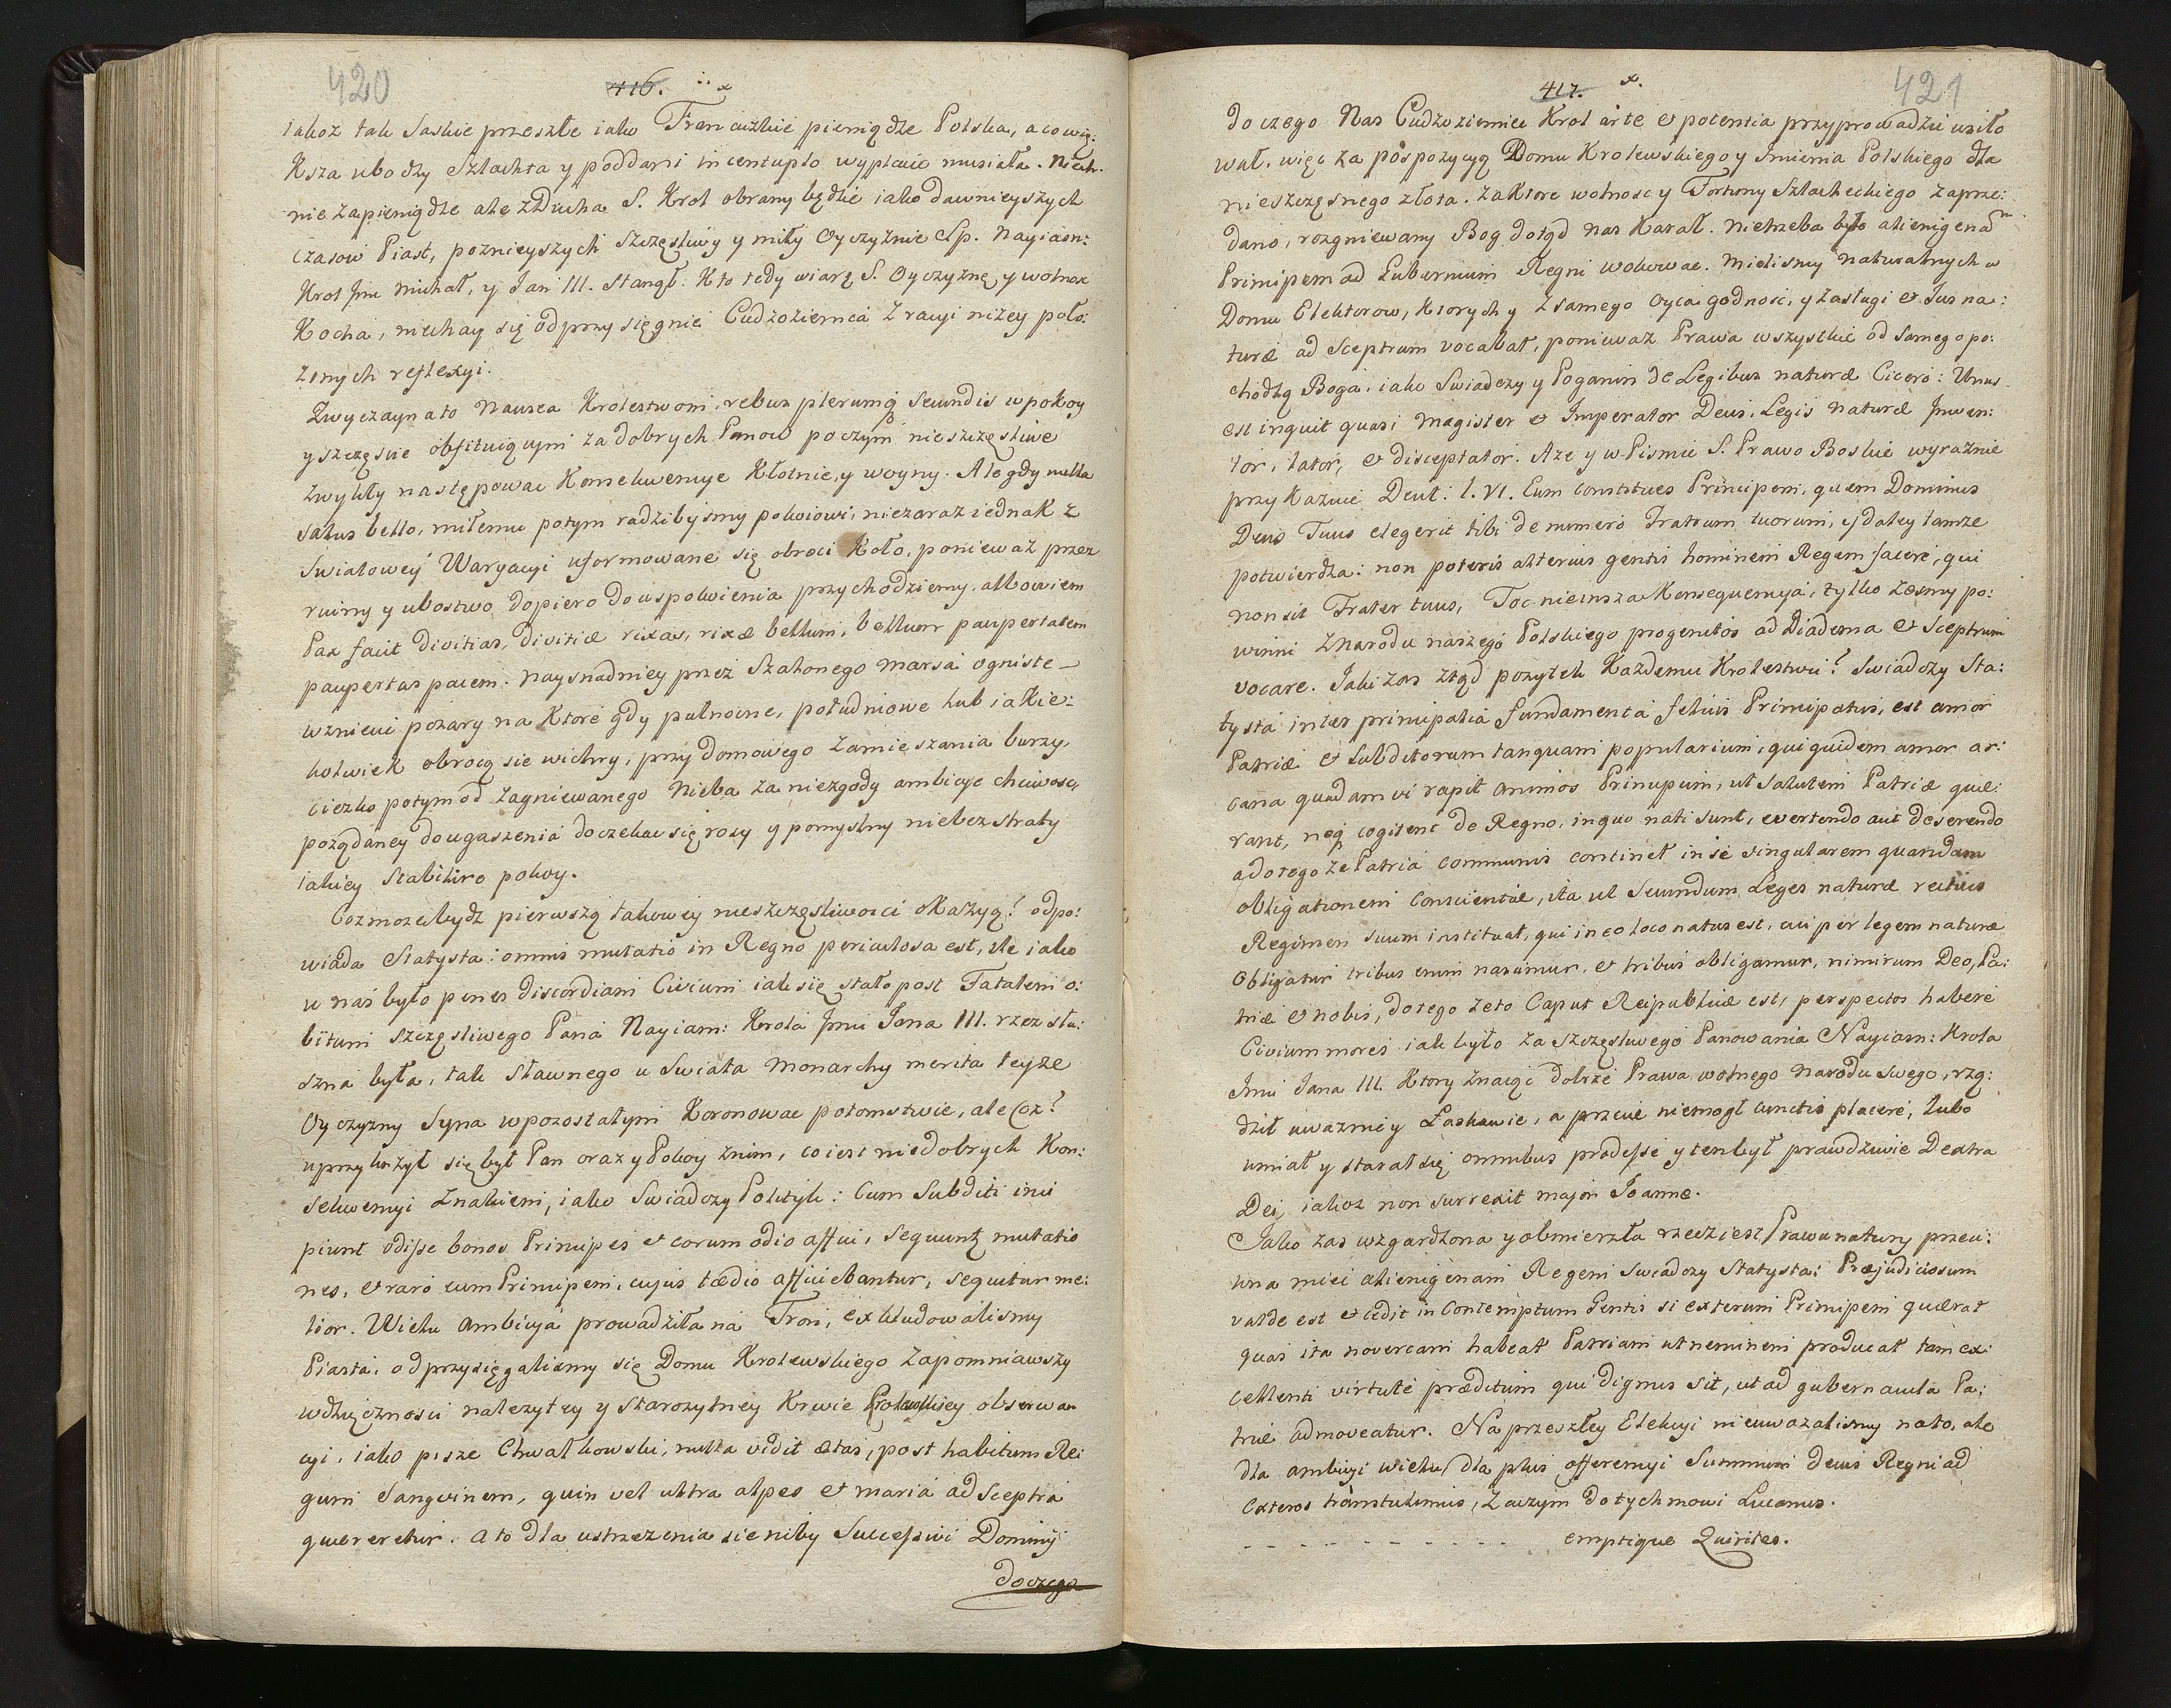 420
416.
iakoz tak Saskie przeszłe iako Francuzkie pieniądze Polska, a co wię:
Ksza ubodzy Szlachta y poddani in centuplo wypłacic musiała. Niech
nie za pieniądze ale z Ducha S. Krol obrany będzie iako dawnieyszych
czasow Piast, poznieyszych szczęsliwy y miły Oyczyznie Sp. Nayiasn:
Krol Jmc Michał, y Jan III. stanął. Kto tedy wiarę S. Oyczyznę y wolnosc
Kocha, niechay się odprzysięgnie Cudzoziemca z racyi nizey poło:
zonych reflexyi.
Zwyczayna to Nausea Krolestwom, rebus plerumq secundis w pokoy
y szczęscie obfituiącym za dobrych Panow po czym nieszczęsliwe
zwykły następowac Konsekwencye Kłotnie, y woyny. Ale gdy nulla
salus bello, miłemu potym radzibysmy pokoiowi, niezaraz iednak z
Swiatowey Waryacyi uformowane się obroci Koło, poniewaz przez
ruiny y ubostwo dopiero do uspokoienia przychodziemy, albowiem
Pax facit divitias, divitiæ rixas, rixæ bellum, bellum paupertatem
paupertas pacem. Naysnadniey przez Szalonego Marsa ogniste
wznieci pozary na Ktore gdy pułnocne, południowe lub iakie:
kolwiek obrocą sie wichry, przy domowego zamieszania burzy,
ciezko potym od zagniewanego Nieba za niezgody ambicye chciwosc,
poządaney do ugaszenia doczekac się rosy y pomyslny nie bez straty
iakiey stabiliro pokoy.
Coz moze bydz pierwszą takowey nieszczęsliwosci okazyą? odpo:
wiada Statysta: omnis mutatio in Regno periculosa est, ile iako
u nas było penes discordiam Civium iak się stało post Fatalem o:
bitum szczęsliwego Pana Nayiasn: Krola Jmci Jana III. rzecz słu:
szna była, tak sławnego u Swiata Monarchy merita teyze
Oyczyzny Syna w pozostałym Koronowac potomstwie, ale Coz?
uprzykrzył się był Pan oraz y Pokoy znim, co iest niedobrych Kon:
sekwencyi znakiem, iako Swiadczy Polityk: Cum Subditi inci
piunt odisse bonos Principes et eorum odio affici, sequuntz mutatio
nes, et raro eum Principem, cujus tædio afficiebantur, sequitur me:
lior. Wielu Ambicya prowadziła na Tron, exkludowalismy
Piasta, odprzysięgalismy się Domu Krolewskiego zapomniawszy
wdzięcznosci nalezytey y starozytney Krwie Krolewskiey obserwan
cyi, iako pisze Chwałkowski, nulla vidit ætas, post habitum Re:
gum Sangvinem, quin vel ultra alpes et maria ad Sceptra
quereretur. A to dla ustrzezenia sie niby Successivi Dominÿ
do czego
421
417.
do czego Nas Cudzoziemiec Krol arte et potentia przyprowadzic usiło
wał. więc za pospozycyą Domu Krolewskiego y Jmienia Polskiego dla
nieszczęsnego złota. za ktore wolnosc y Fortuny Szlacheckiego zaprze:
dano, rozgniewany Bog dotąd nas Karał. nietrzeba było alienigenam
Principem ad Gubernium Regni wokowac. Mielismy naturalnych w
Domu Elektorow, Ktorych y z samego oyca godnosc, y zasługi et Jus na:
turæ ad Sceptrum vocabat, poniewaz Prawa wszystkie od samego po:
chodzą Boga, iako Swiadczy y Poganin de Legibus naturæ Cicero: Unus
est inquit quasi magister et Imperator Deus, Legis naturæ Inven:
tor, lator, et disceptator. Aze y w Pismie S. Prawo Boskie wyraznie
przykazuie Deut: l. VI. Eum constitues Principem, quem Dominus
Deus Tuus elegerit tibi de numero Fratrum tuorum, y daley tamze
potwierdza: non poteris alterius gentis hominem Regem facere, qui
non sit Frater tuus, Toc nieinsza Konsequencya, tylko zesmy po:
winni z Narodu naszego Polskiego progenitos ad Diadema et Sceptrum
vocare. Jaki zas ztąd pozytek Kazdemu Krolestwu? Swiadczy Sta:
tysta inter principalia fundamenta felicis Principatus, est amor
Patriæ et Subditorum tanquam popularium, qui quidem amor ar:
cana quadam vi rapit animos Principum, ut Salutem Patriæ quæ:
rant, neq cogitent de Regno, in quo nati sunt, evertendo aut deserendo
a do tego ze Patria communis continet in se singularem quandam
obligationem Conscientiæ, ita ut Secundum Leges naturæ rectius
Regimen suum instituat, qui in eo loco natus est, cui per legem naturæ
Obligatur tribus enim nascimur, et tribus obligamur, nimirum Deo, Pa:
triæ et nobis, do tego ze to Caput Reipublicæ est, perspectos habere
Civium mores iak było za szczęsliwego Panowania Nayiasn: Krola
Jmci Jana III. Ktory znaiąc dobrze Prawa wolnego narodu swego, rzą:
dził uwazniey Łaskawie, a przecie niemogł cunctis placere, lubo
umiał y starał się omnibus prodesse y ten był prawdziwie Dextra
Dei, iakoz non surrexit major Joanne.
Jako zas wzgardzona y obmierzła rzecz iest Prawu natury przeci:
wna miec alienigenam Regem Swiadczy Statysta: Præjudiciosum
valde est et cedit in Contemptum Gentis si externum Principem quærat
quasi ita novercam habeat Patriam ut neminem producat tam ex:
cellenti virtute præditum qui dignus sit, ut ad gubernacula Pa:
triæ admoveatur. Na przeszłey Elekcyi nieuwazalismy na to, ale
dla ambicyi wielu, dla plus offerencyi Summum decus Regni ad
Exteros transtulimus, Zaczym do tych mowi Lucanus.
- - - - - - - - - - - emptique Quirites.